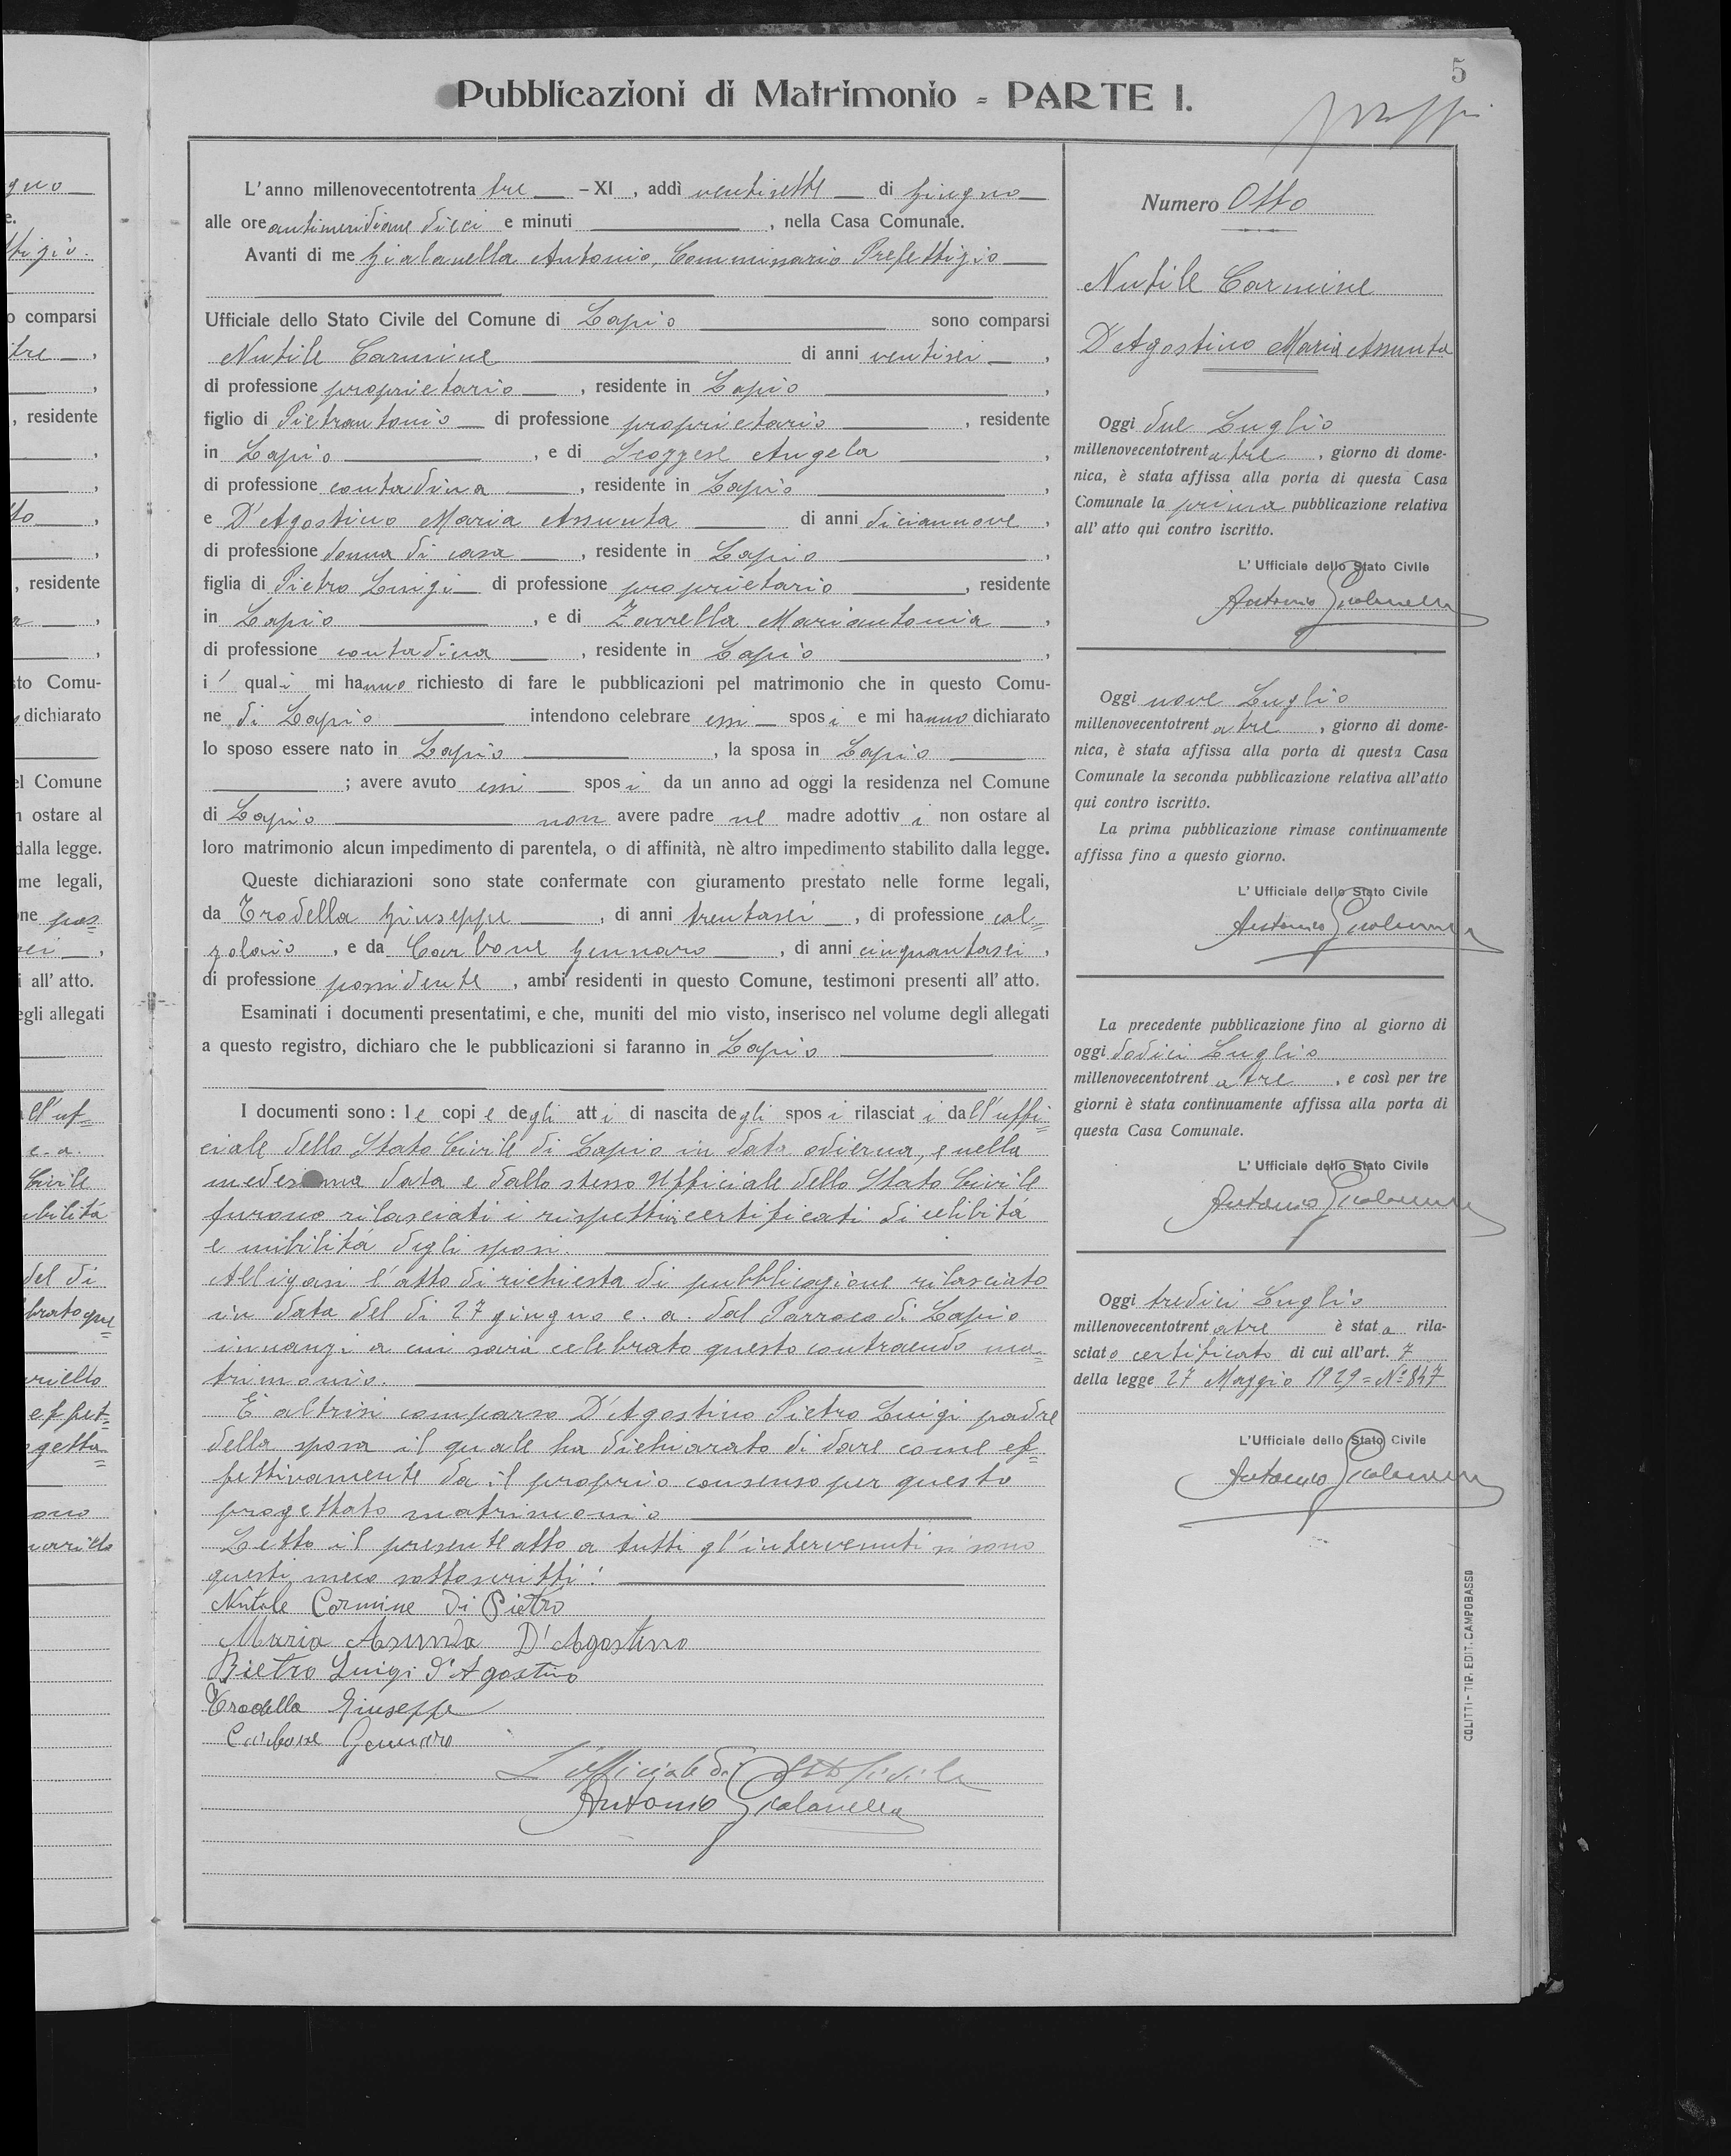 5
Pubblicazioni di Matrimonio = PARTE I.
L'anno millenovecentotrenta tre — XI, addì ventisette di Giugno
alle ore antimeridiane dieci e minuti , nella Casa Comunale.
Avanti di me Gialanella Antonio, Commissario Prefettizio
Ufficiale dello Stato Civile del Comune di Lapio sono comparsi
Nutile Carmine di anni ventisei ,
di professione proprietario , residente in Lapio ,
figlio di Pietrantonio di professione proprietario , residente
in Lapio , e di Scoggese Angela ,
di professione contadina , residente in Lapio ,
e D'Agostino Maria Assunta di anni diciannove ,
di professione donna di casa , residente in Lapio ,
figlia di Pietro Luigi di professione proprietario , residente
in Lapio , e di Zarrella Mariantonia ,
di professione contadina , residente in Lapio ,
i quali mi hanno richiesto di fare le pubblicazioni pel matrimonio che in questo Comu-
ne di Lapio intendono celebrare essi sposi e mi hanno dichiarato
lo sposo essere nato in Lapio , la sposa in Lapio
; avere avuto essi sposi da un anno ad oggi la residenza nel Comune
di Lapio non avere padre ne madre adottivi non ostare al
loro matrimonio alcun impedimento di parentela, o di affinità, nè altro impedimento stabilito dalla legge.
Queste dichiarazioni sono state confermate con giuramento prestato nelle forme legali,
da Trodella Giuseppe , di anni trentasei , di professione cal=
zolaio , e da Carbone Gennaro , di anni cinquantasei ,
di professione possidente , ambi residenti in questo Comune, testimoni presenti all'atto.
Esaminati i documenti presentatimi, e che, muniti del mio visto, inserisco nel volume degli allegati
a questo registro, dichiaro che le pubblicazioni si faranno in Lapio
I documenti sono: le copie degli atti di nascita degli sposi rilasciati dall'uffi=
ciale dello Stato Civile di Lapio in data odierna, e nella
medesima data e dallo stesso Ufficiale dello Stato Civile
furono rilasciati i rispettivi certificati di celibità
e nubilità degli sposi.
Alligasi l'atto di richiesta di pubblicazione rilasciato
in data del dì 27 giugno c. a. dal Parroco di Lapio
innanzi a cui sarà celebrato questo contraendo ma=
trimonio.
È altresì comparso D'Agostino Pietro Luigi padre
della sposa il quale ha dichiarato di dare come ef=
fettivamente dà il proprio consenso per questo
progettato matrimonio
Letto il presente atto a tutti gl'intervenuti si sono
questi meco sottoscritti:
Nutile Carmine di Pietro
Maria Asunda D'Agostino
Pietro Luigi D'Agostino
Trodella Giuseppe
Carbone Gennaro
L'Ufficiale di Stato Civile
Antonio Gialanella
Numero Otto
Nutile Carmine
D'Agostino Maria Assunta
Oggi due Luglio
millenovecentotrentatre , giorno di dome-
nica, è stata affissa alla porta di questa Casa
Comunale la prima pubblicazione relativa
all'atto qui contro iscritto.
L'Ufficiale dello Stato Civile
Antonio Gialanella
Oggi nove Luglio
millenovecentotrentatre , giorno di dome-
nica, è stata affissa alla porta di questa Casa
Comunale la seconda pubblicazione relativa all'atto
qui contro iscritto.
La prima pubblicazione rimase continuamente
affissa fino a questo giorno.
L'Ufficiale dello Stato Civile
Antonio Gialanella
La precedente pubblicazione fino al giorno di
oggi dodici Luglio
millenovecentotrentatre , e così per tre
giorni è stata continuamente affissa alla porta di
questa Casa Comunale.
L'Ufficiale dello Stato Civile
Antonio Gialanella
Oggi tredici Luglio
millenovecentotrentatre è stata rila-
sciato certificato di cui all'art. 7
della legge 27 Maggio 1929 = N.º 847
L'Ufficiale dello Stato Civile
Antonio Gialanella
COLITTI - TIP. EDIT. CAMPOBASSO